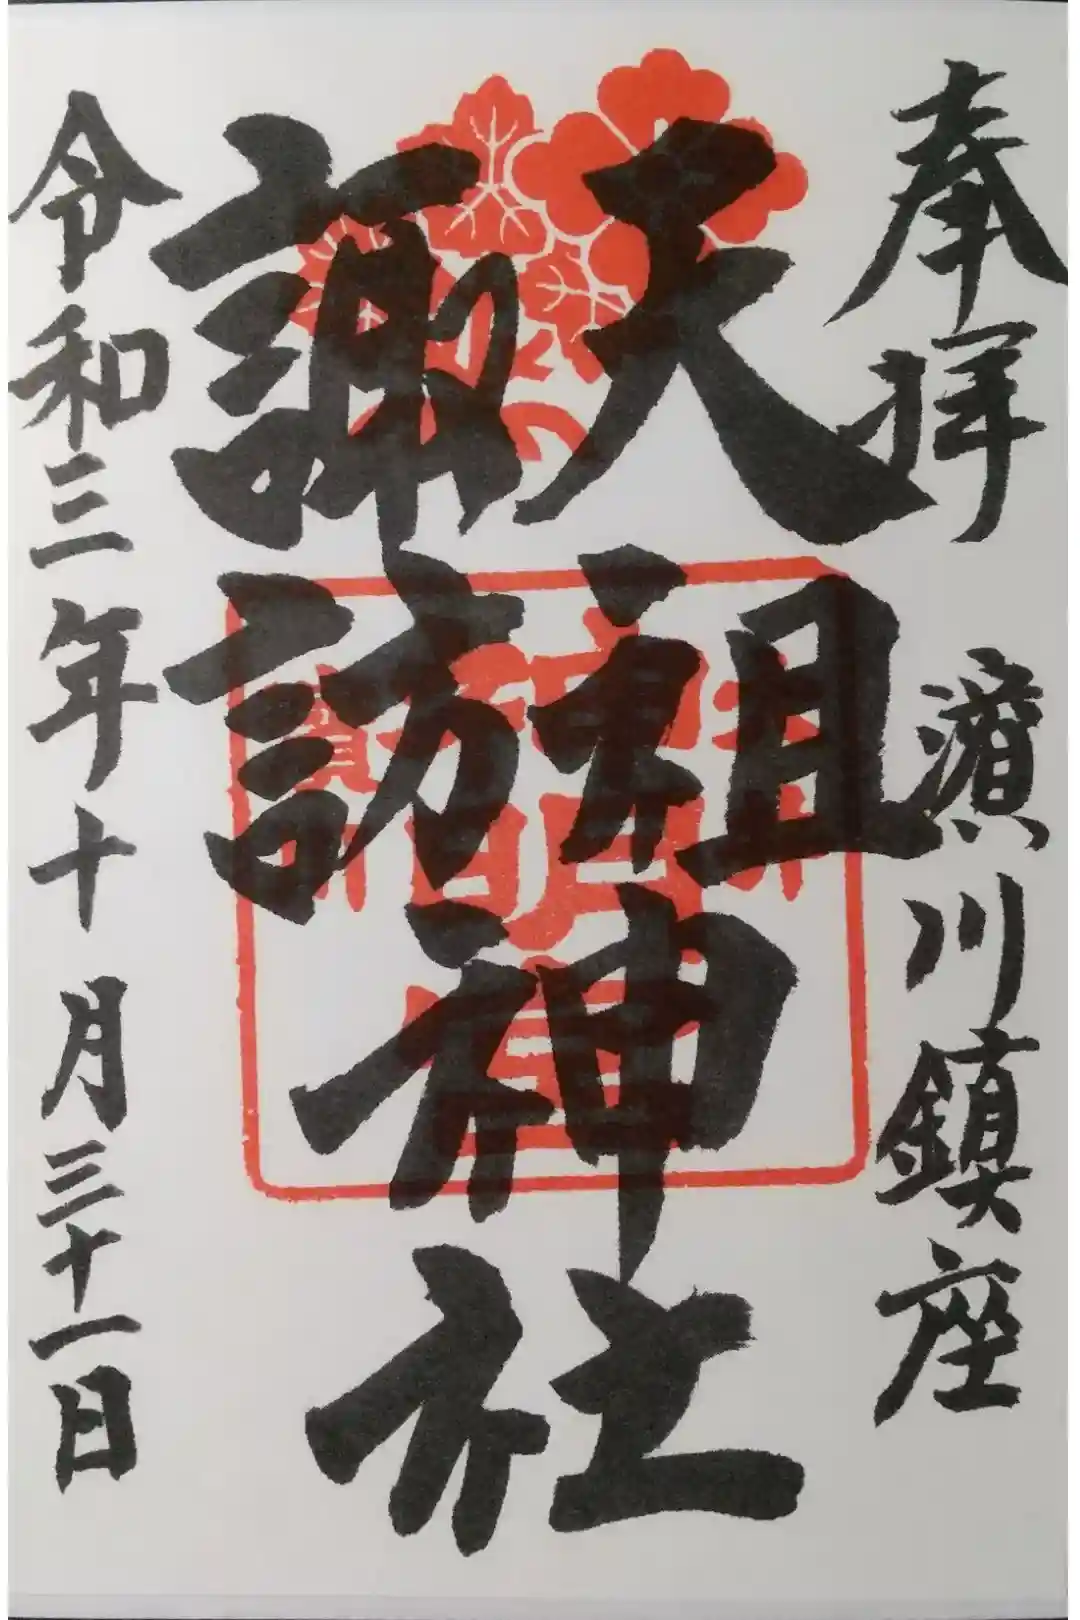 奉拝　濱川鎮座
天祖
諏訪
神社
令和三年十月三十一日